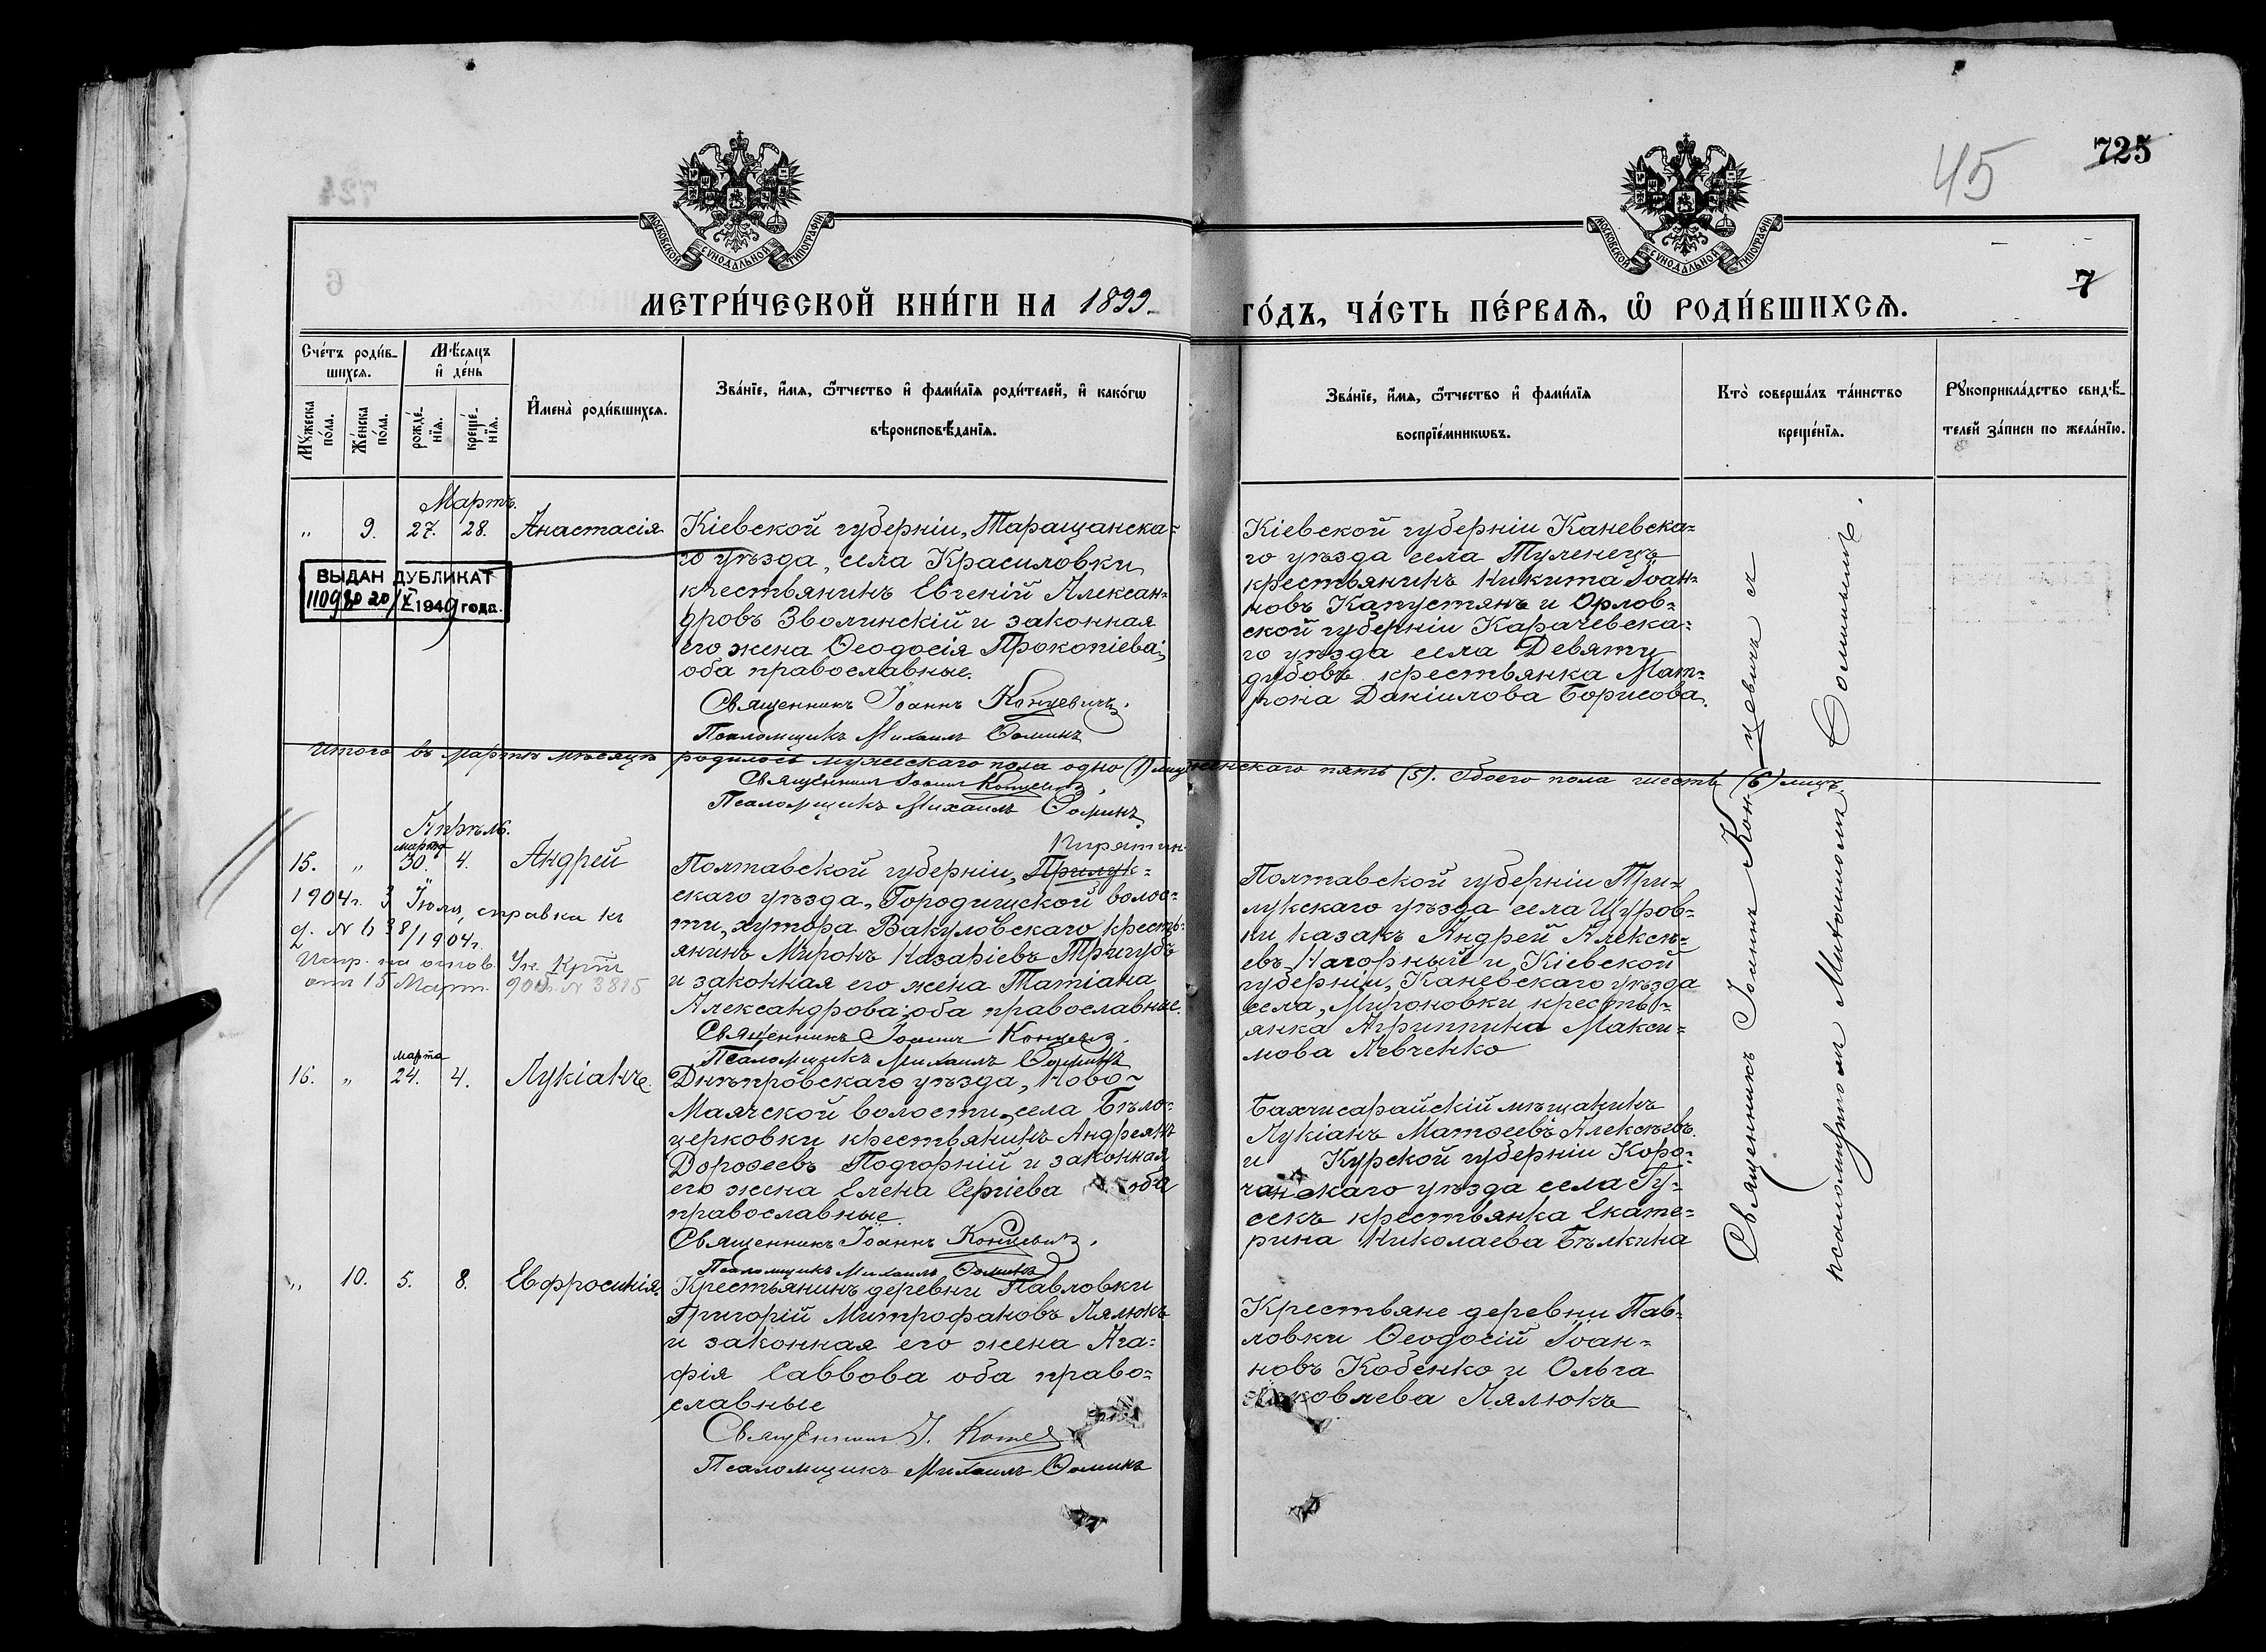 725
45
7
МОСКОВСКОЙ СѴНОДАЛЬНОЙ ТИПОГРАФІИ
МОСКОВСКОЙ СѴНОДАЛЬНОЙ ТИПОГРАФІИ
МЕТРИ́ЧЕСКОЙ КНИ́ГИ НА 1899.
ГО́ДЪ, ЧА́СТЬ ПЕ́РВАѦ, Ѡ҆ РОДИ́ВШИХСѦ.
Сче́тъ роди́в-
шихсѧ.
Мѣ́сѧцъ
и҆ де́нь
Мꙋ́жеска
по́ла.
Же́нска
по́ла.
рожде́-
нїѧ.
креще́-
нїѧ.
И҆мена̀ роди́вшихсѧ.
Зва́нїе, и҆́мѧ, ѻ҆́тчество и҆ фами́лїѧ роди́телей, и҆ како́гѡ
вѣроисповѣ́данїѧ.
Зва́нїе, и҆́мѧ, ѻ҆́тчество и҆ фами́лїѧ
воспрїе́мникѡвъ.
Кто̀ соверша́лъ та́инство
креще́нїѧ.
Рꙋкоприкла́дство свидѣ́-
телей за́писи по жела́нїю.
Мартъ.
„ 9. 27. 28. Анастасія
Кіевской губерніи, Таращанска-
го уѣзда, села Красиловки
крестьянинъ Евгеній Алексан-
дровъ Зволинскій и законная
его жена Ѳеодосія Прокопіева;
оба православные.
Священникъ Іоаннъ Концевичъ.
Псаломщикъ Михаилъ Ѳоминъ
Кіевской губерніи Каневска-
го уѣзда села Тулинецъ
крестьянинъ Никита Іоан-
новъ Капустянъ и Орлов-
ской губерніи Карачевска-
го уѣзда села Девяти
дубовъ крестьянка Мат-
рона Даніилова Борисова.
ВЫДАН ДУБЛИКАТ
110980 20/X 1949 года.
Итого въ мартѣ мѣсяцѣ родилось мужескаго пола одно (1) лицо женскаго пять (5). Обоего пола шесть (6) лицъ.
Священникъ Іоаннъ Концевичъ
Псаломщикъ Михаилъ Ѳоминъ
Апрѣль.
марта
15. „ 30. 4. Андрей
Пирятин-
Полтавской губерніи, Прилук-
скаго уѣзда, Городищской волос-
ти, хутора Вакуловскаго кресть-
янинъ Миронъ Назаріевъ Тригубъ
и законная его жена Татіана
Александрова; оба православные.
Священникъ Іоаннъ Концевичъ.
Псаломщикъ Михаилъ Ѳоминъ
1904 г. 3 Іюля, справка къ
д. № 638/1904 г.
Испр. на основ. Ук.
отъ 15 Март. № 3815
Полтавской губерніи При-
лукскаго уѣзда села Щуров-
ки казакъ Андрей Алексѣ-
евъ Нагорный и Кіевской
губерніи, Каневскаго уѣзда
села, Мироновки кресть-
янка Агриппина Макси-
мова Левченко
марта
16. „ 24. 4. Лукіанъ.
Днѣпровскаго уѣзда, Ново-
Маячской волости, села Бѣло-
церковки крестьянинъ Андреянъ
Дороѳеевъ Подгорній и законная
его жена Елена Сергіева оба
православные.
Священникъ Іоаннъ Концевичъ.
Псаломщикъ Михаилъ Ѳоминъ
Бахчисарайскій мѣщанинъ
Лукіанъ Матѳеевъ Алексѣевъ.
и Курской губерніи Коро-
чанскаго уѣзда села Гу-
секъ крестьянка Екате-
рина Николаева Бѣлкина
„ 10. 5. 8. Евфросинія.
Крестьянинъ деревни Павловки
Григорій Митрофановъ Лялюкъ
и законная его жена Ага-
фія Саввова оба право-
славные
Священникъ І.
Псаломщикъ Михаилъ Ѳоминъ
Крестьяне деревни Пав-
ловки Ѳеодосій Іоан-
новъ Кобенко и Ольга
Яковлева Лялюкъ
Священникъ Іоаннъ Концевичъ съ
псаломщикомъ Михаиломъ Ѳоминымъ.